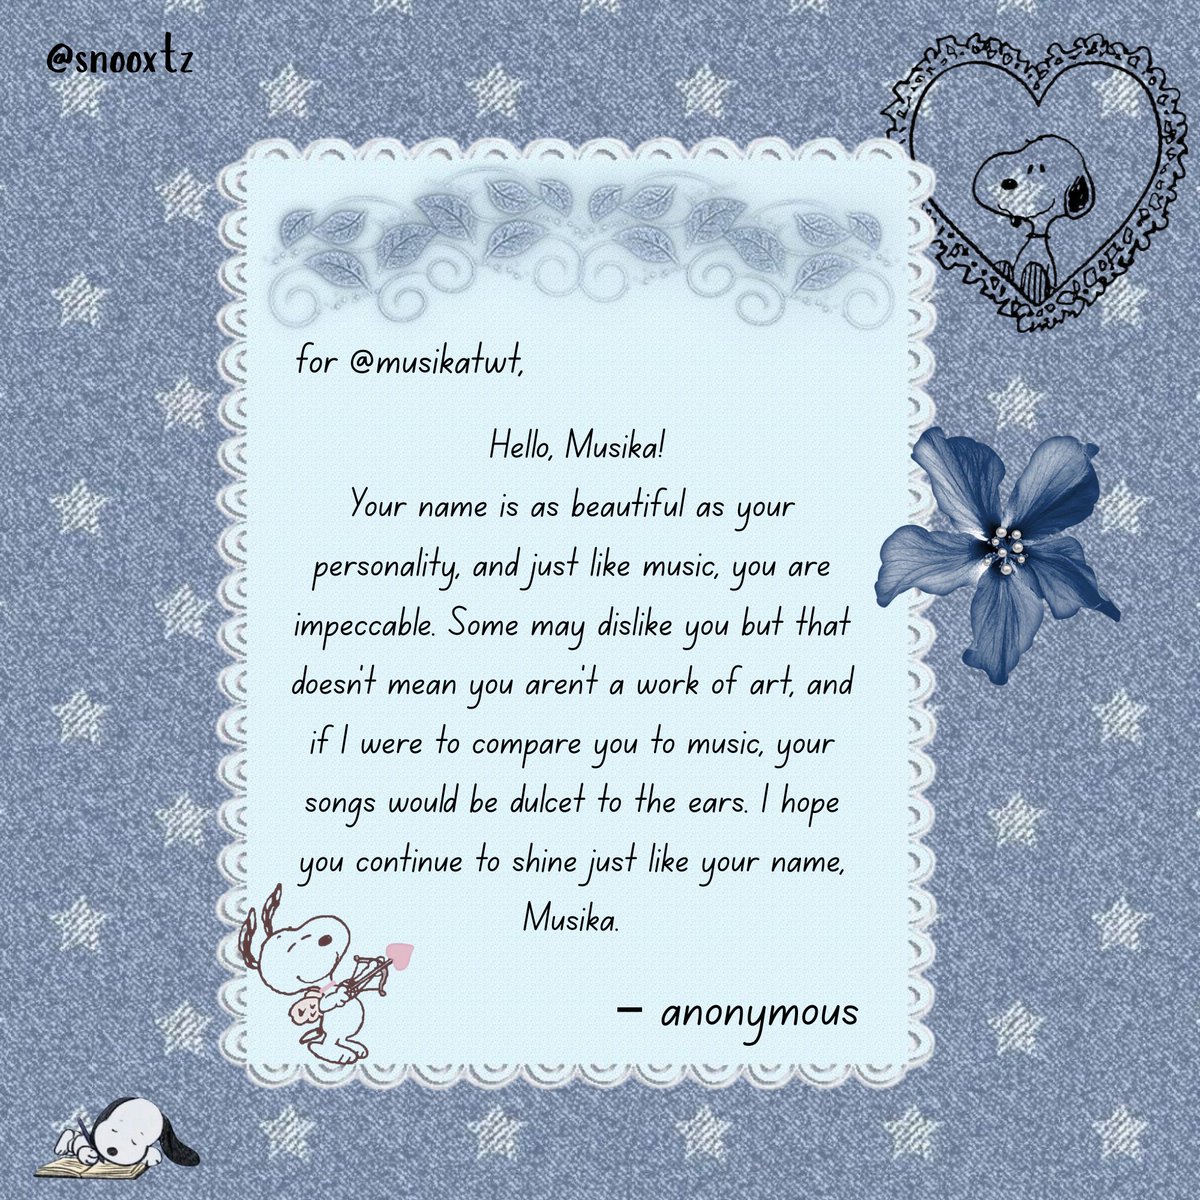 @snooxtz
for @musikatwt,
Hello, Musika!
Your name is as beautiful as your
personality, and just like music, you are
impeccable. Some may dislike you but that
doesn't mean you aren't a work of art, and
if I were to compare you to music, your
songs would be dulcet to the ears. I hope
you continue to shine just like your name,
Musika.
– anonymous